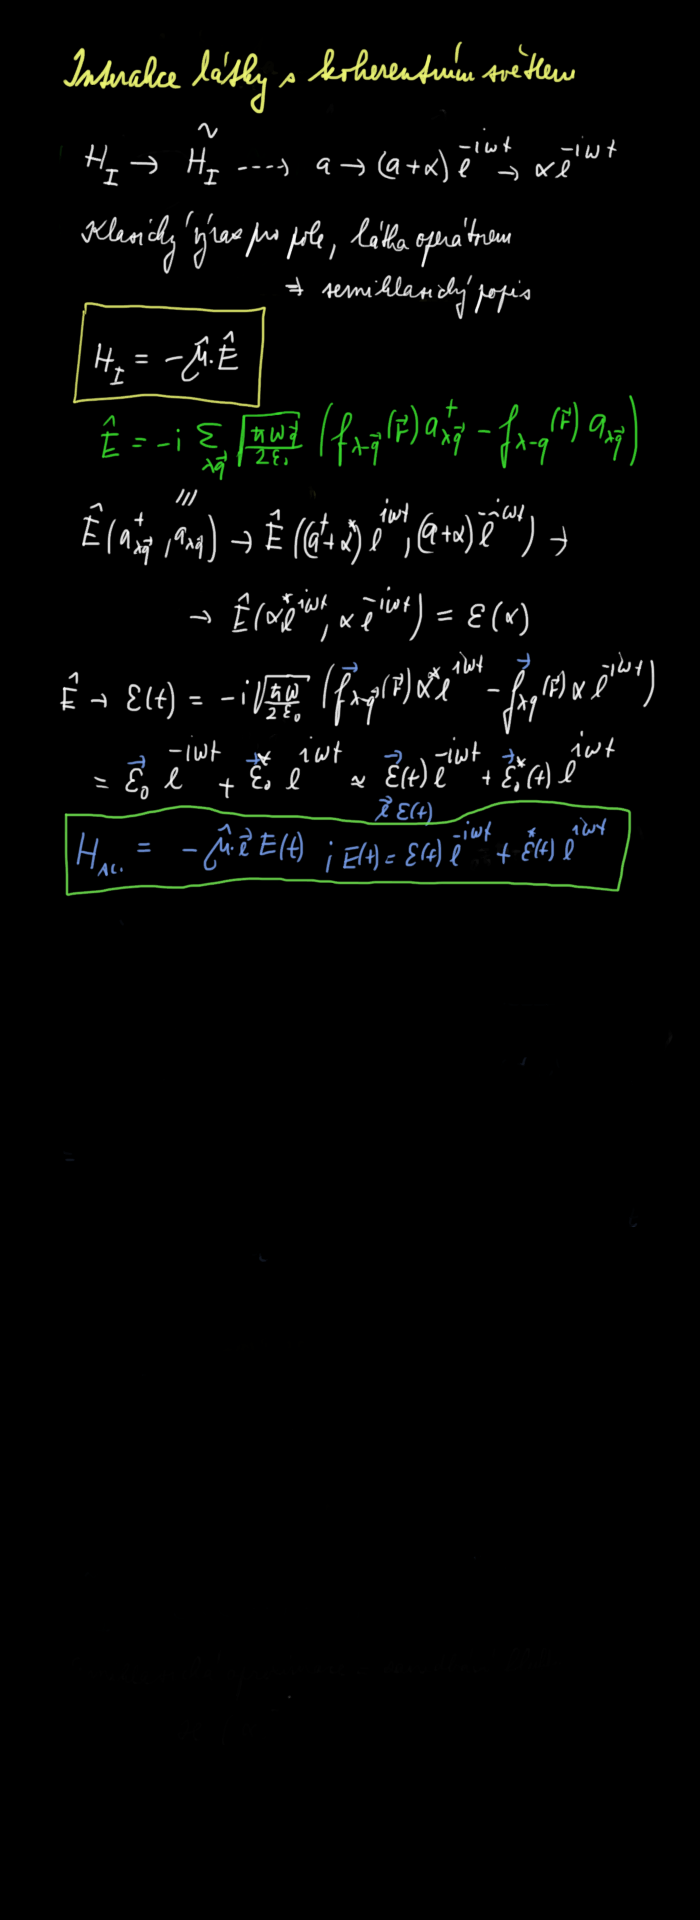 Interakce látky s koherentním světlem
H_I → H̃_I ----> a → (a+α) e^{-iωt} → α e^{-iωt}
Klasický výraz pro pole, látka operátorem
⇒ semiklasický popis
H_I = -μ̂·Ê
Ê = -i Σ_{λq⃗} √(ħω_q⃗/2ε₀) (f_{λ-q⃗}(r⃗) a⁺_{λq⃗} - f_{λ-q}(r⃗) a_{λq⃗})
Ê(a⁺_{λq⃗}, a_{λq⃗}) → Ê((a⁺+α*) e^{iωt}, (a+α) e^{-iωt}) →
→ Ê(α* e^{iωt}, α e^{-iωt}) = ε(α)
Ê → ε(t) = -i √(ħω/2ε₀) (f⃗_{λ-q}(r⃗) α* e^{iωt} - f⃗_{λq}(r⃗) α e^{-iωt})
= ε⃗₀ e^{-iωt} + ε⃗₀* e^{iωt} ≈ ε⃗(t) e^{-iωt} + ε⃗₀*(t) e^{iωt}
e⃗ ε(t)
H_{sc.} = -μ̂·e⃗ E(t) ; E(t) = ε(t) e^{-iωt} + ε*(t) e^{iωt}